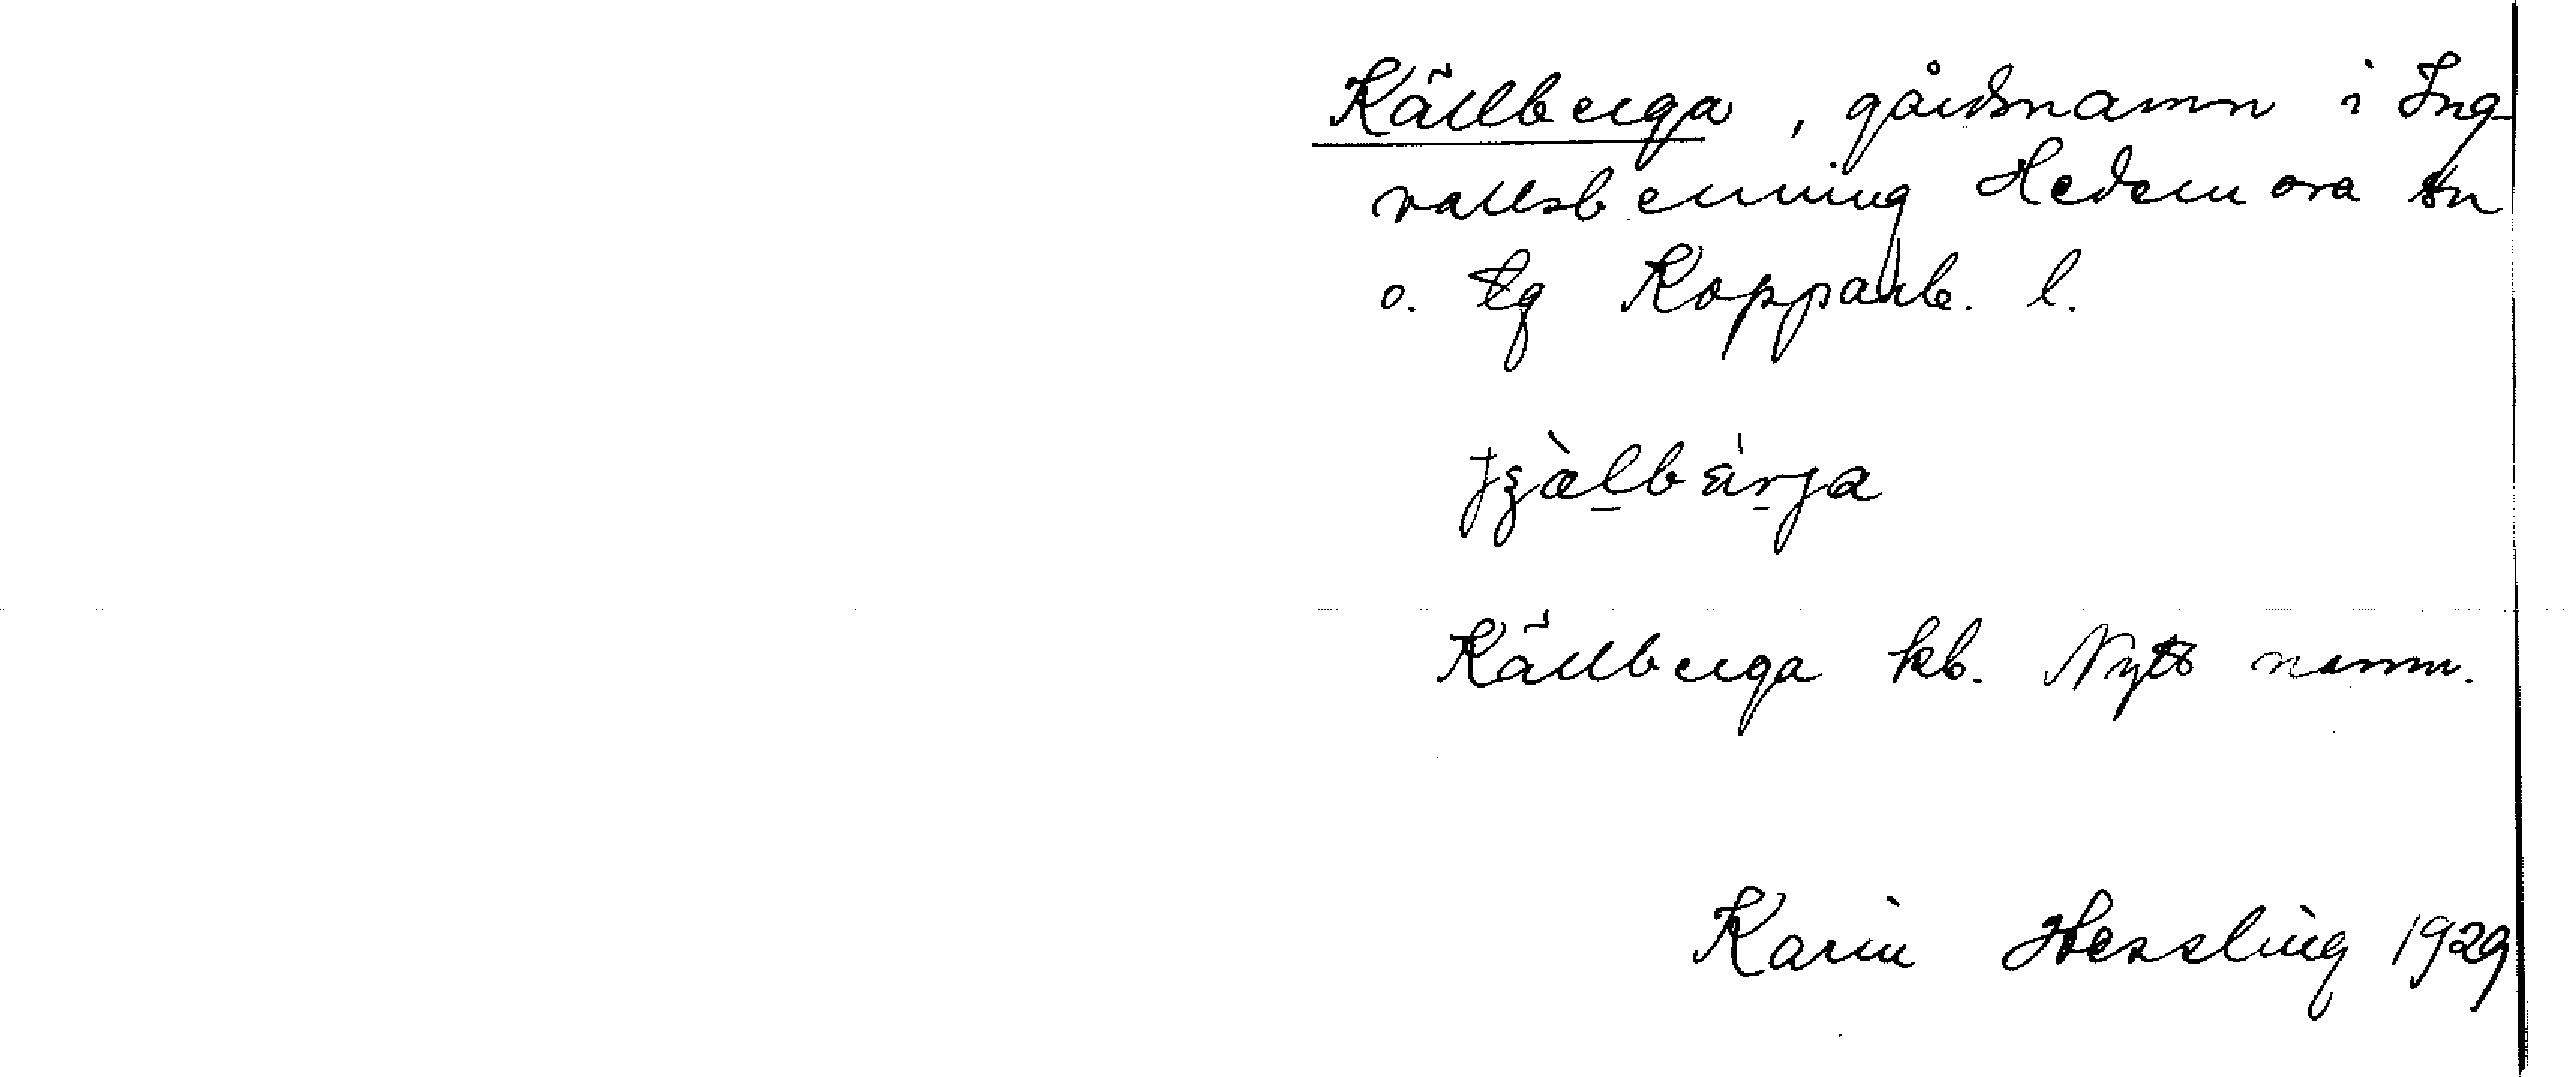 Källberga, gårdsnamn i Ing-
vallsbenning Hedemora sn
o. tg Kopparb. l.
Källberga kb. Nytt namn.
Karin Hessling 1929